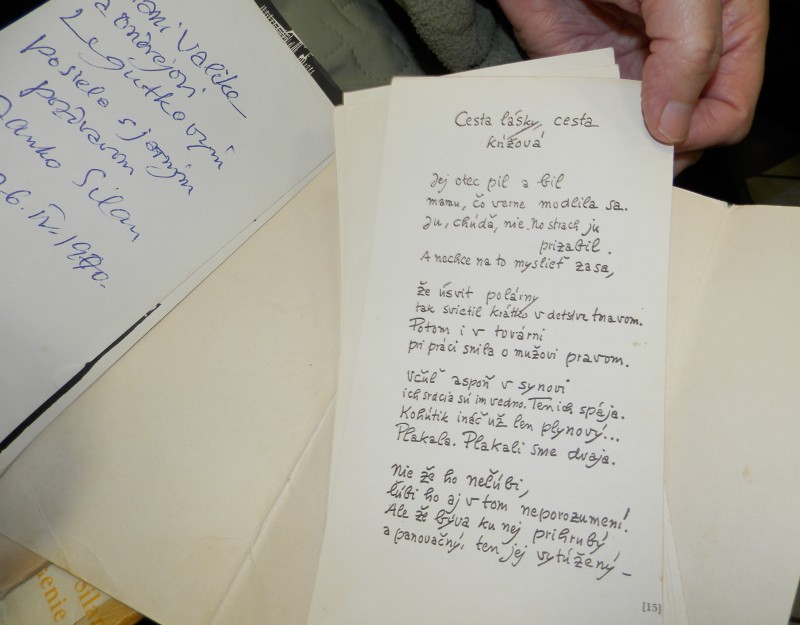 pani Valike
a Ondrejovi
Legutkovým
posiela s jarným
pozdravom
Janko Silan
26. IV. 1970.
Cesta lásky, cesta
krížová
Jej otec pil a bil
mamu, čo verne modlila sa.
Ju, chúďa, nie. No strach ju
prizabil.
A nechce na to myslieť zasa,
že úsvit polárny
tak svietil krátko v detstve tmavom.
Potom i v továrni
pri práci snila o mužovi pravom.
Včuľ aspoň v synovi
ich srdcia sú im vedno. Ten ich spája.
Kohútik ináč už len plynový...
Plakala. Plakali sme dvaja.
Nie že ho neľúbi,
ľúbi ho aj v tom neporozumení!
Ale že býva ku nej prihrubý
a panovačný, ten jej vytúžený –
[15]
Silan
enie